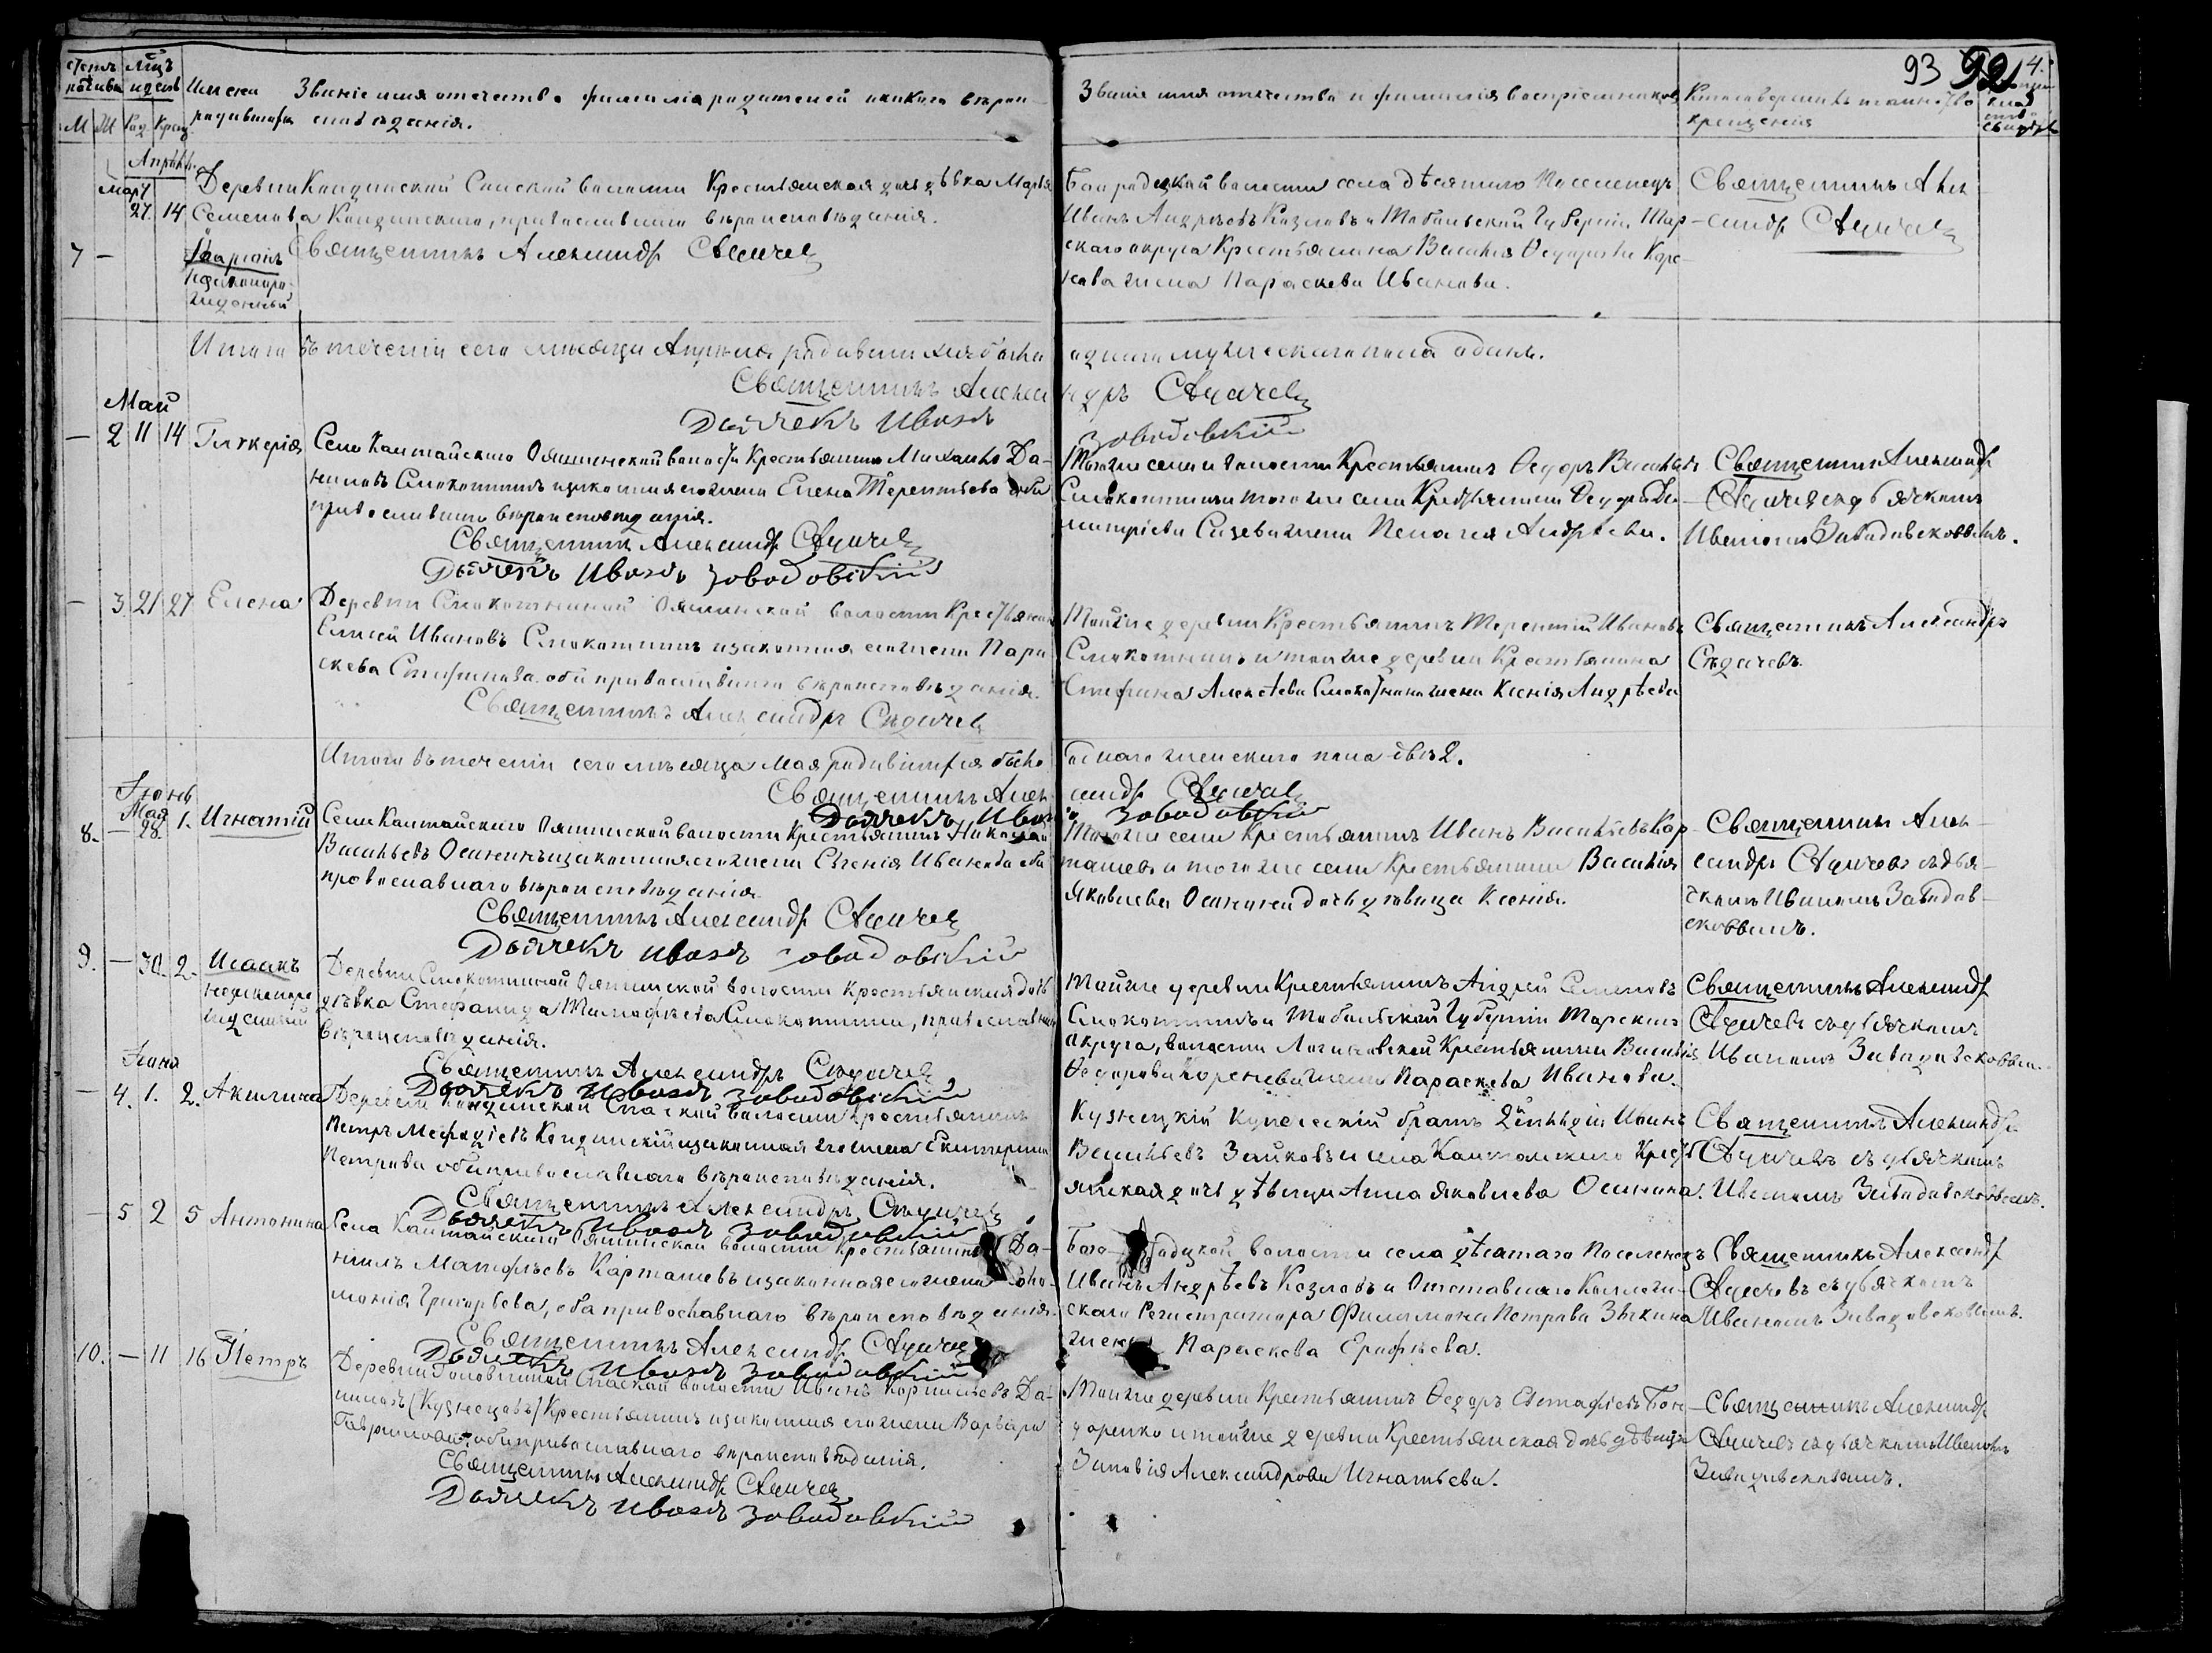 93 92 4.
Счетъ родивш. Мцъ и день Имена родившихся Званіе имя отечество фамилія родителей и какого вѣроисповѣданія.
Званіе имя отечество и фамилія воспріемниковъ
Кто совершалъ таинство крещенія
М Ж Род. Крещ.
Апрѣль
Март.
7 — 27. 14
незаконорожденный
Деревни Кандинской Спаской волости Крестьянская дочь дѣвка Марья
Семенова Кандинскаго, православнаго вѣроисповѣданія.
Священникъ Александръ Сѣдачевъ
Богородцкой волости села Десятаго Поселенецъ
Иванъ Андрѣевъ Козловъ и Тобольской Губерніи Тар-
скаго округа Крестьянина Василія Ѳедорова Коре-
нева жена Параскева Иванова.
Священникъ Алек-
сандръ Сѣдачевъ
Итого въ теченіи сего мѣсяца Апрѣля родившихся было
одного мужескаго пола одинъ.
Священникъ Александръ Сѣдачевъ
Дьячекъ Иванъ Заводовскій
Май
— 2 11 14 Гликерія
Села Калтайскаго Ояшинской волости Крестьянинъ Михаилъ Да-
ниловъ Смокотнинъ и законная его жена Елена Терентьева оба
православнаго вѣроисповѣданія.
Священникъ Александръ Сѣдачевъ
Дьячекъ Иванъ Заводовскій
Того же села и волости Крестьянинъ Ѳедоръ Васильевъ
Смокотнинъ и того же села Крестьянина Ѳедора Ди-
митріева Сизева жена Пелагія Андрѣева.
Священникъ Александръ
Сѣдачевъ съ дьячкомъ
Иваномъ Заводовсковымъ.
— 3 21 27 Елена
Деревни Смокотниной Ояшинской волости Крестьянинъ
Елисѣй Ивановъ Смокотнинъ и законная его жена Пара-
скева Стефанова оба православнаго вѣроисповѣданія.
Священникъ Александръ Сѣдачевъ
Той же деревни Крестьянинъ Терентій Ивановъ
Смокотнинъ и той же деревни Крестьянина
Стефана Алексѣева Смокотнина жена Ксенія Андрѣева
Священникъ Александръ
Сѣдачевъ.
Итого въ теченіи сего мѣсяца Мая родившихся было
одного женскаго пола двѣ 2.
Священникъ Александръ Сѣдачевъ
Дьячекъ Иванъ Заводовскій
Іюнь
Мая
8. — 28. 1. Игнатій
Села Калтайскаго Ояшинской волости Крестьянинъ Николай
Васильевъ Осининъ и законная его жена Евгенія Иванова оба
православнаго вѣроисповѣданія
Священникъ Александръ Сѣдачевъ
Дьячекъ Иванъ Заводовскій
Того же села Крестьянинъ Иванъ Васильевъ Кар-
ташевъ и того же села Крестьянина Василія
Яковлева Осинина дочь дѣвица Ксенія.
Священникъ Алек-
сандръ Сѣдачевъ съ дья-
чкомъ Иваномъ Заводов-
сковымъ.
9. — 30. 2. Исаакъ
незаконорожденный
Деревни Смокотниной Ояшинской волости Крестьянская дочь
дѣвка Стефанида Тимофѣева Смокотнина, православнаго
вѣроисповѣданія.
Священникъ Александръ Сѣдачевъ
Дьячекъ Иванъ Заводовскій
Той же деревни Крестьянинъ Андрей Семеновъ
Смокотнинъ и Тобольской Губерніи Тарскаго
округа, волости Логиновской Крестьянина Василія
Ѳедорова Коренева жена Параскева Иванова.
Священникъ Александръ
Сѣдачевъ съ дьячкомъ
Иваномъ Заводовсковым.
Іюня
— 4. 1. 2. Акилина
Деревни Кандинской Спаской волости Крестьянинъ
Петръ Мефодіевъ Кандинскій и законная его жена Екатерина
Петрова оба православнаго вѣроисповѣданія.
Священникъ Александръ Сѣдачевъ
Дьячекъ Иванъ Заводовскій
Кузнецкій Купеческій братъ 2й гильдіи Иванъ
Васильевъ Зайковъ и села Калтайскаго Крест-
янская дочь дѣвица Анна Яковлева Осинина.
Священникъ Александръ
Сѣдачевъ съ дьячкомъ
Иваномъ Заводовсковымъ.
— 5 2 5 Антонина
Села Калтайскаго Ояшинской волости Крестьянинъ Да-
ніилъ Матфѣевъ Карташевъ и законная его жена Соло-
монія Григорьева, оба православнаго вѣроисповѣданія.
Священникъ Александръ Сѣдачевъ
Дьячекъ Иванъ Заводовскій
Бого родцкой волости села Десятаго Поселенецъ
Иванъ Андрѣевъ Козловъ и Отставнаго Коллеж-
скаго Регистратора Филимона Петрова Зыкина
жена Параскева Ерофѣева.
Священникъ Александръ
Сѣдачевъ съ дьячкомъ
Иваномъ Заводовсковымъ.
10. — 11 16 Петръ
Деревни Головниной Спаской волости Иванъ Корниловъ Да-
ниловъ (Кузнецовъ) Крестьянинъ и законная его жена Варвара
Гаврилова оба православнаго вѣроисповѣданія.
Священникъ Александръ Сѣдачевъ
Дьячекъ Иванъ Заводовскій
Той же деревни Крестьянинъ Ѳедоръ Евстафіевъ Бон-
даренко и той же деревни Крестьянская дочь дѣвица
Зиновія Александрова Игнатьева.
Священникъ Александръ
Сѣдачевъ съ дьячкомъ Иваномъ
Заводовсковымъ.